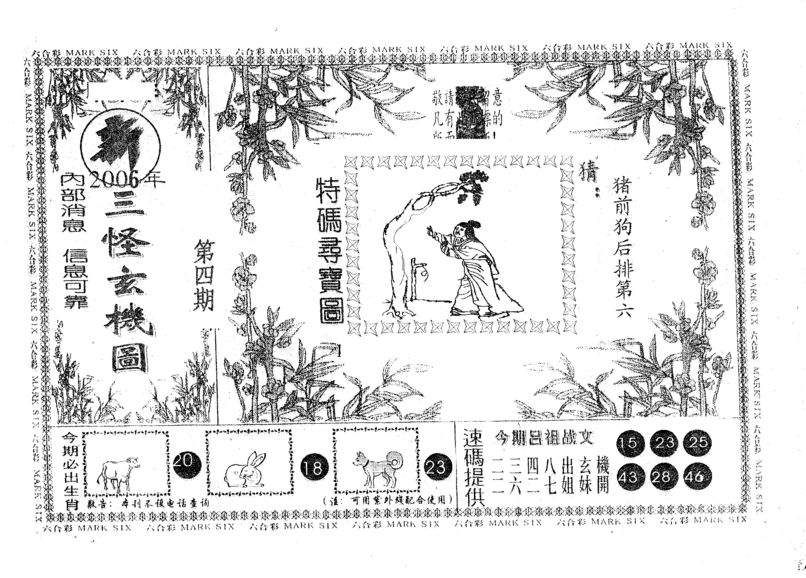 六合彩 MARK SIX 六合彩 MARK SIX 六合彩 MARK SIX 六合彩 MARK SIX 六合彩 MARK SIX 六合彩 MARK SIX 六合彩 MARK SIX
新
2006年
三怪玄機圖
內部消息 信息可靠
第四期
敬請 意
凡有 的
特碼尋寶圖
猜:
猪前狗后排第六
今期必出生肖
20
18
23
敬告:本刊不设电话查询
(注:可用紫外线配合使用)
速碼提供
今期吕祖战文
二三四八出玄機
二六二七姐妹開
15 23 25
43 28 46
六合彩 MARK SIX 六合彩 MARK SIX 六合彩 MARK SIX 六合彩 MARK SIX 六合彩 MARK SIX 六合彩 MARK SIX 六合彩 MARK SIX